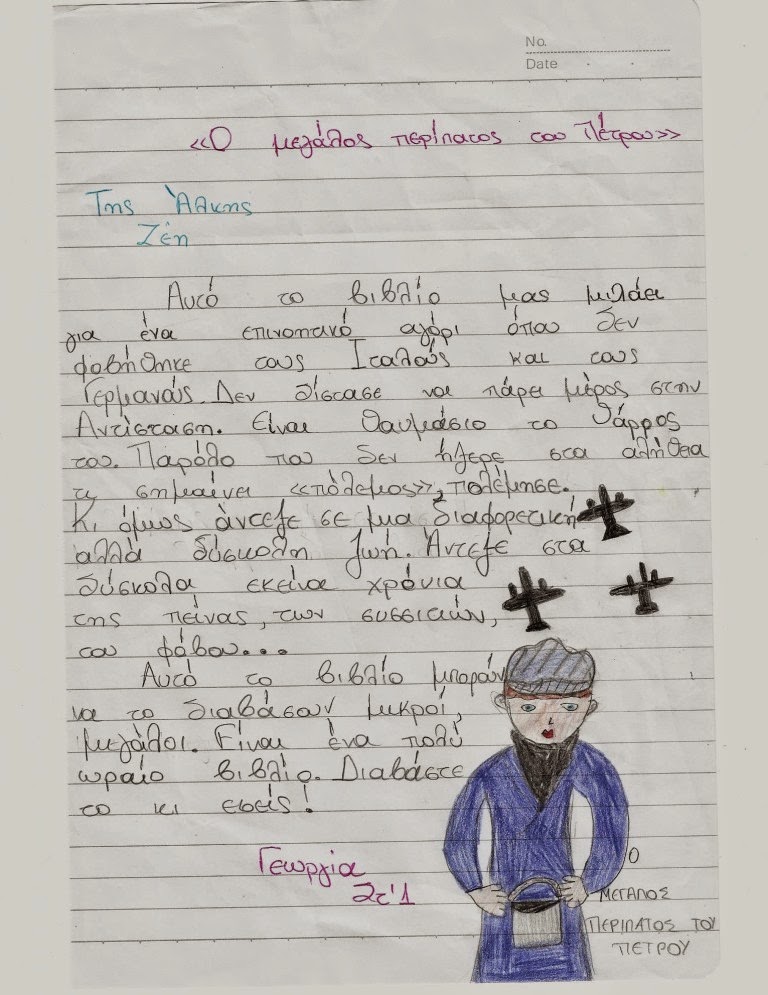 No.
Date
«Ο μεγάλος περίπατος του Πέτρου»
Της Άλκης
Ζέη
Αυτό το βιβλίο μας μιλάει
για ένα επινοητικό αγόρι όπου δεν
φοβήθηκε τους Ιταλούς και τους
Γερμανούς. Δεν δίστασε να πάρει μέρος στην
Αντίσταση. Είναι θαυμάσιο το θάρρος
του. Παρόλο που δεν ήξερε στα αλήθεια
τι σημαίνει «πόλεμος», πολέμησε.
Κι όμως άντεξε σε μια διαφορετική
αλλά δύσκολη ζωή. Άντεξε στα
δύσκολα εκείνα χρόνια
της πείνας, των συσσιτιών,
του φόβου...
Αυτό το βιβλίο μπορούν
να το διαβάσουν μικροί,
μεγάλοι. Είναι ένα πολύ
ωραίο βιβλίο. Διαβάστε
το κι εσείς!
Γεωργία
Στ'1
Ο
ΜΕΓΑΛΟΣ
ΠΕΡΙΠΑΤΟΣ ΤΟΥ
ΠΕΤΡΟΥ